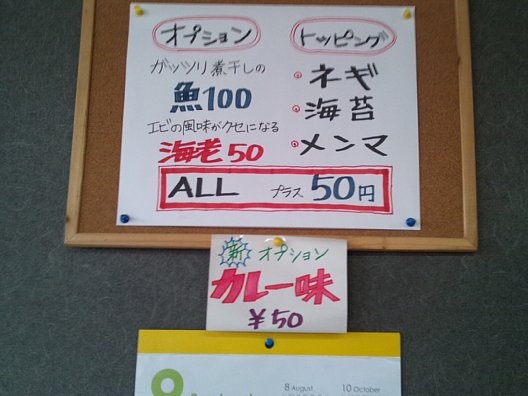 オプション
ガッツリ煮干しの
魚100
エビの風味がクセになる
海老50
トッピング
ネギ
海苔
メンマ
ALL プラス 50円
新 オプション
カレー味
¥50
8 August 10 October